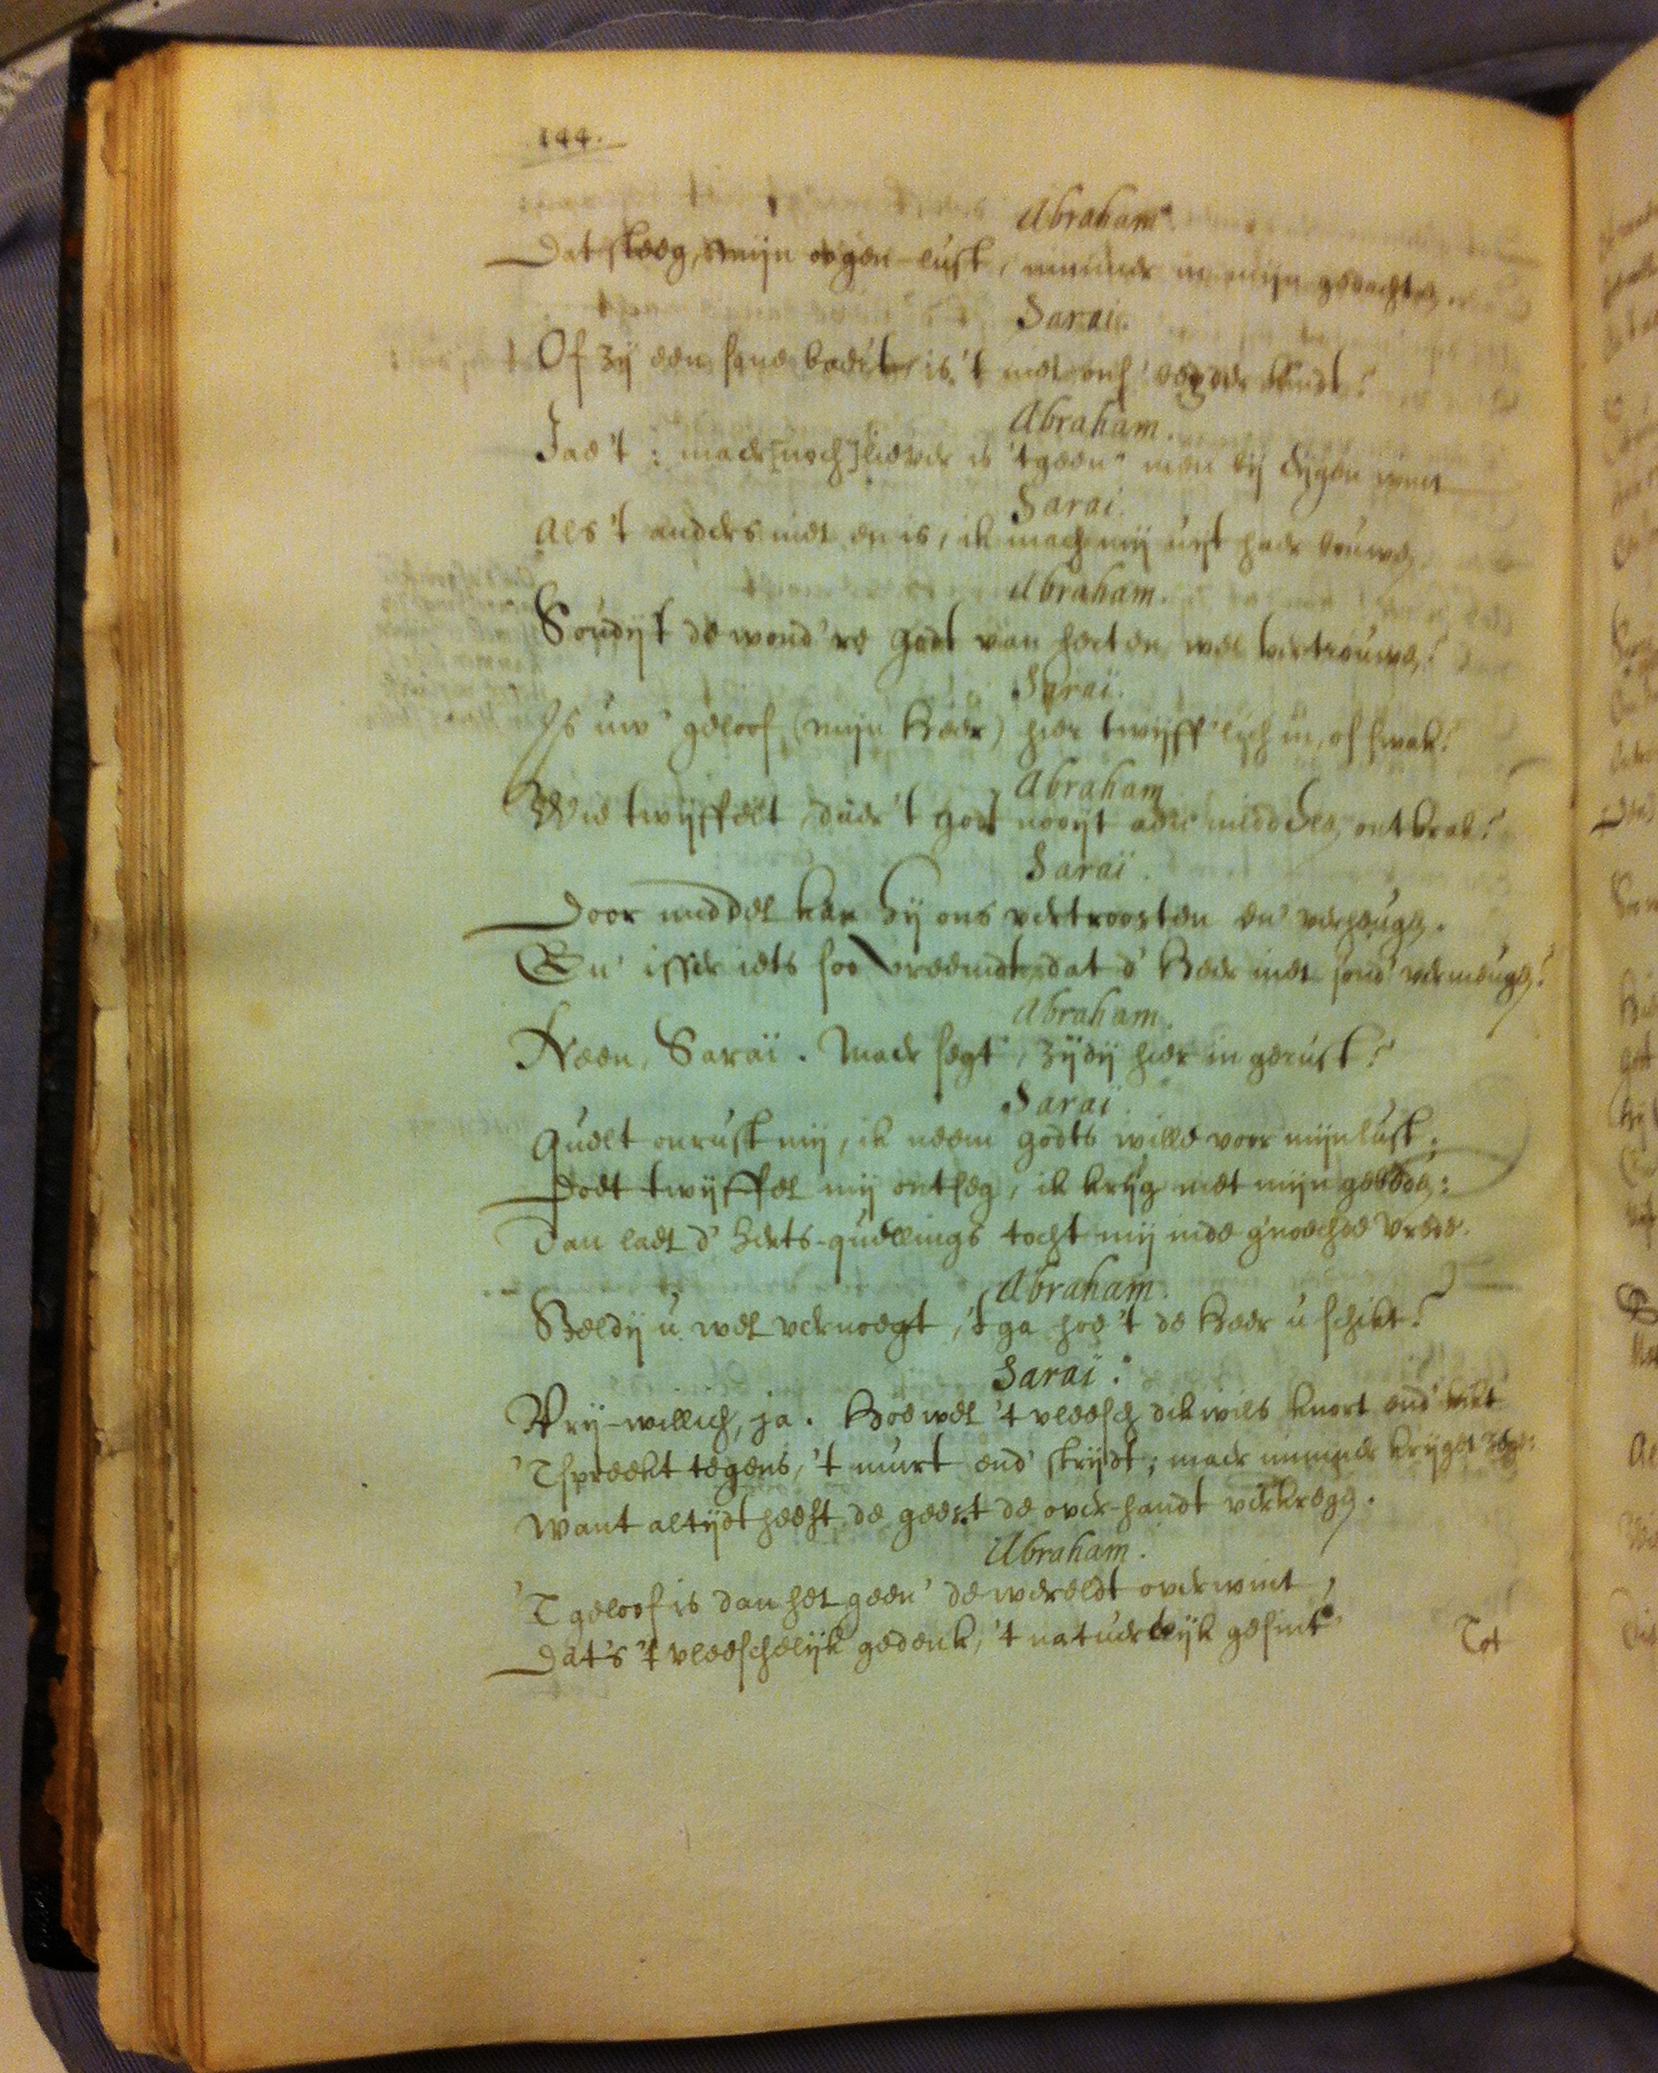 144.
Abraham.
Dat sleeg, mijn oogen-lust, nimmer in mijn gedachten.
Sarai.
Of zy een sone baert, is 't niet ons' beyder kindt?
Abraham.
Jae 't: maer [noch] liever is 't geen' men by eygen wint
Sarai.
Als 't anders niet en is, ik mach mij uyt haer bouwen.
Abraham.
Soudijt de wond're Godt van herten wel vertrouwen?
Saraï.
Is uw' geloof (mijn Heer) hier twijff'lich in, of swak?
Abraham
Wie twijffelt, daer 't Godt nooyt aen middelen ontbrak?
Saraï.
Door middel kan hij ons vertroosten en' verheugen.
En' isser iets soo vreemdt, dat d' Heer niet soud' vermeugen?
Abraham.
Neen, Saraï. Maer segt, zijdij hier in gerust?
Saraï.
Quelt onrust mij, ik neem Godts wille voor mijn lust;
Doet twijffel mij ontseg, ik krijg met mijn gebede:
Dan laet d' herts-quellings tocht mij inde g'noechde vrede.
Abraham.
Heldij u wel vernoegt, 't ga hoe 't de Heer u schikt?
Saraï.
Vrij-willich, ja. Hoewel 't vleesch dikwils knort end' wikt
'T spreekt tegens, 't murt end' strijdt; maer nimmer krijget zege:
Want altijdt heeft de geest de over-handt verkregen.
Abraham.
'T geloof is dan het geen' de wereldt overwint,
Dat's 't vleeschelijk gedenk, 't natuerlijk gesint
Tot